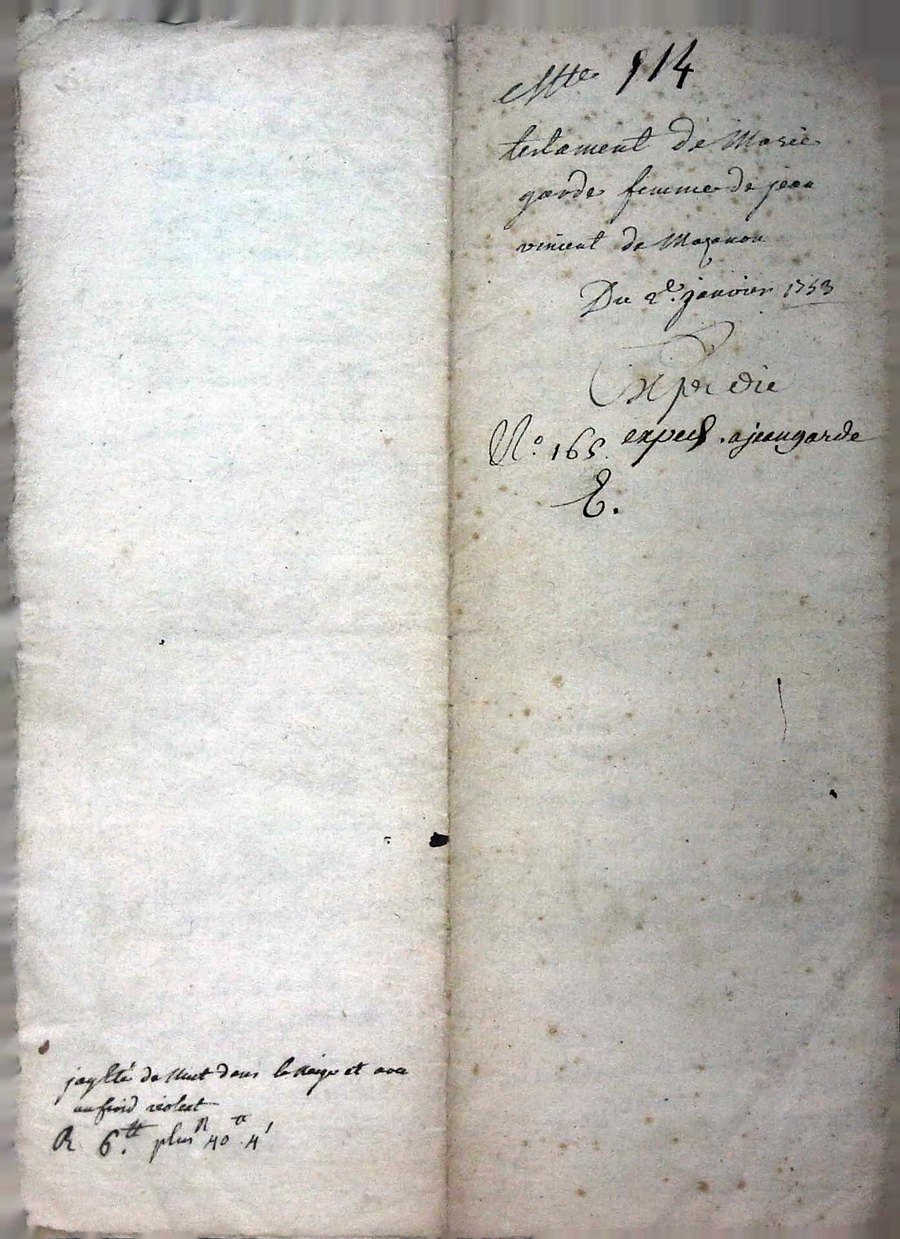 114
testament de Marie
garde femme de jean
vincent de Mazanon
Du 2e. janvier 1753
Expedie
No. 165. exped. a jean garde
E.
jay été de nuit dans la neige et avec
un froid violent
R 6.tt plus 40 4